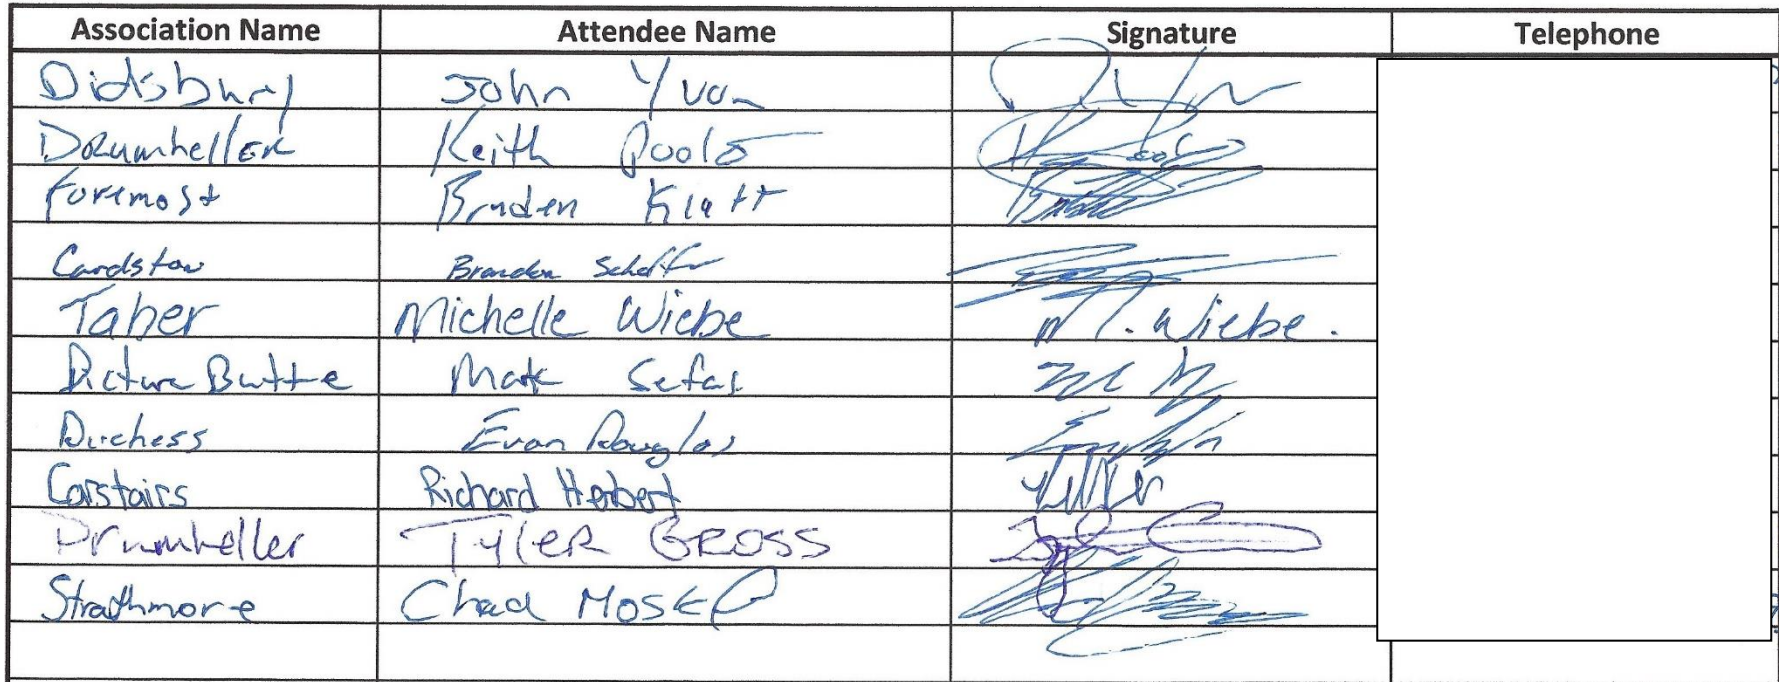 Association Name Attendee Name Signature Telephone
Didsbury John Yvon
Drumheller Keith Poole
Foremost Braden Klatt
Cardston Brandon
Taber Michelle Wiebe M. Wiebe.
Picture Butte Mark
Duchess Evan Douglas
Carstairs Richard Herbert
Drumheller Tyler GROSS
Strathmore Chad